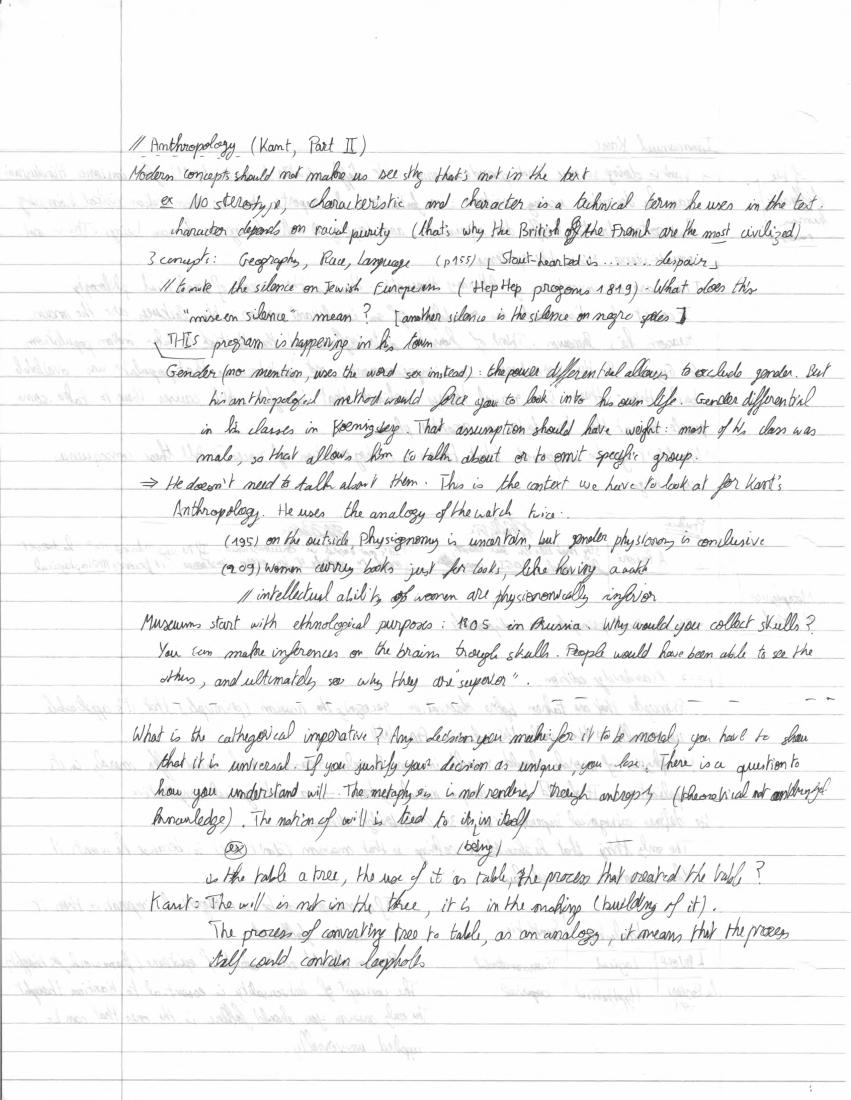 // Anthropology (Kant, Part II)
Modern concepts should not make us see sthg that's not in the text
ex No sterotype, characteristic and character is a technical term he uses in the text.
character depends on racial purity (that's why the British & the French are the most civilized)
3 concepts: Geography, Race, Language (p155) [Stout-hearted is ....... despair]
// to note the silence on Jewish Europeans (HepHep progoms 1819). What does this
"mise en silence" mean? [another silence is the silence on negro
THIS program is happening in his town
Gender (no mention, uses the word sex instead): the power differential allows to exclude gender. But
his anthropological method would force you to look into his own life. Gender differential
in his classes in Koenigsberg. That assumption should have weight: most of his class was
male, so that allows him to talk about or to omit specific group.
⇒ He doesn't need to talk about them. This is the context we have to look at for Kant's
Anthropology. He uses the analogy of the watch twice.
(195) on the outside, Physignomy is uncertain, but gender physionomy is conclusive
(209) women carry books just for looks, like having a watch
// intellectual ability of women are physionomically inferior
Museums start with ethnological purposes: 1805 in Prussia. Why would you collect skulls?
You can make inferences on the brains trough skulls. People would have been able to see the
others, and ultimately see why they are "superior".
What is the cathegorical imperative? Any decision you make for it to be moral, you have to show
that it is universal. If you justify your decision as unique, you lose. There is a question to
how you understand will. The metaphysis is not rendered through (theoretical not
knowledge). The notion of will is tied to in itself
(being)
ex
is the table a tree, the use of it as table, the process that created the table?
Kant: The will is not in the three, it is in the making (building of it).
The process of converting tree to table, as an analogy, it means that the process
itself could contain loopholes